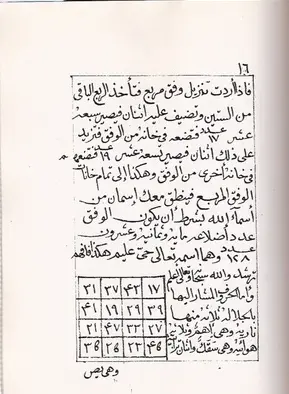 ١٦
فاذا أردت تنزيل وفق مربع فتأخذ الربع الباقى
من الستين وتضيف عليه اثنان فيصير سبعة
عشر ١٧ عدد فتضعه فى خانة من الوفق فتزيد
على ذلك اثنان فيصير تسعة عشر ١٩ عدد فتضعه
فى خانة أخرى من الوفق وهكذا إلى تمام خانات
الوفق المربع فينطق معك إسمان من
أسماء الله بشرط ان يكون الوفق
عدد أضلاعه مائة وثمانية وعشرون
١٢٨ عدد وهما اسمه تعالى حىّ عليم هكذا فافهم
ترشد والله سبحانه وتعالى أعلم
وأما الحروف المشار اليها
ثلاثة منها
نارية وهى وثلاثة
هوائية وهى سقك واثنان
وهى بص
١٧ ٤٣ ٣٧ ٣١
٣٩ ٢٩ ١٩ ٤١
٢٧ ٣٣ ٤٧ ٢١
٤٥ ٢٣ ٢٥ ٣٥